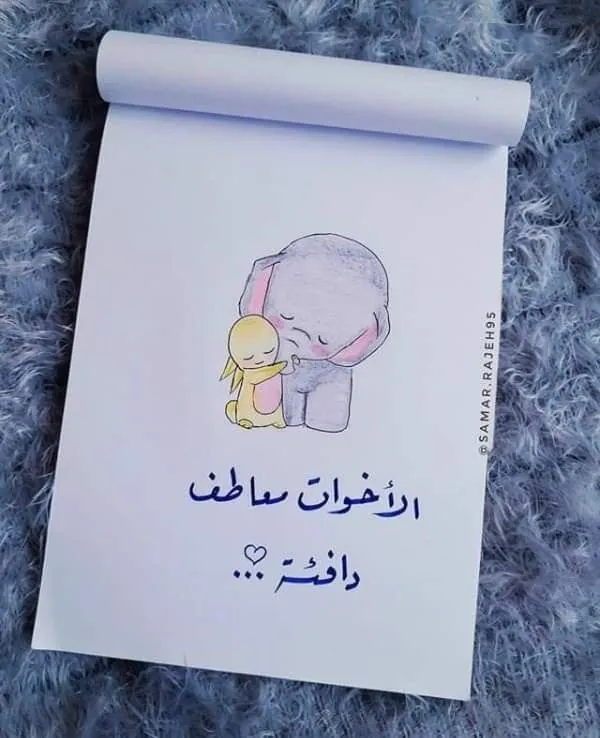 الأخوات معاطف
دافئة ...
@SAMAR.RAJEH95